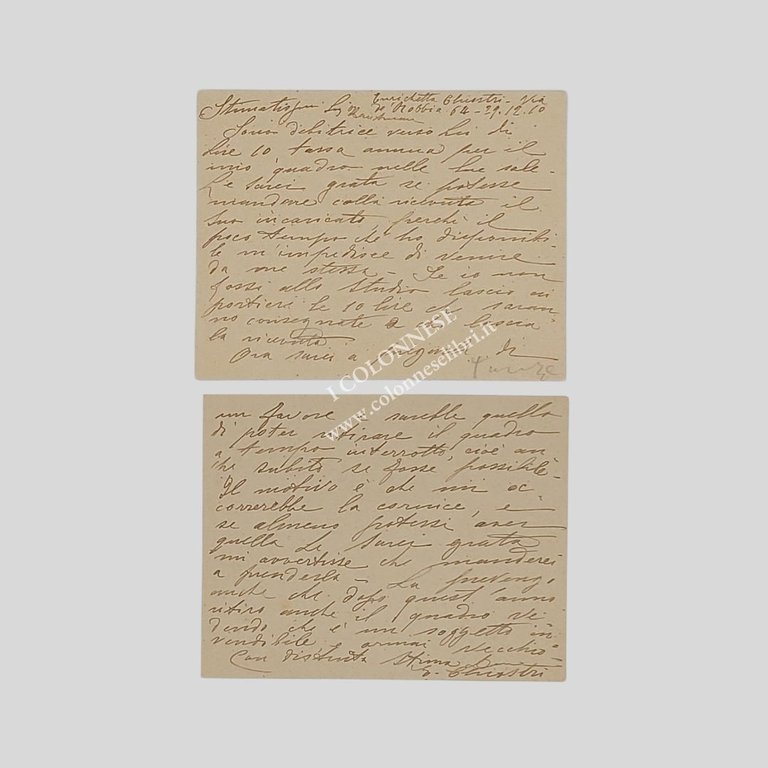 Enrichetta Chiostri - Via
Stimatissimo Sig. de Robbia 64 - 29.12.10
Sono debitrice verso Lei di
Lire 10 tassa annua per il
mio quadro nelle Sue sale -
Le sarei grata se potesse
mandare colla ricevuta il
Suo incaricato perchè il
poco tempo che ho disponibi-
le m'impedisce di venire
da me stessa - Se io non
fossi allo studio lascio ai
portieri le 10 lire che saran-
no consegnate a chi
la ricevuta
Ora sarei a pregarla di
Firenze
un favore - sarebbe quello
di poter ritirare il quadro
a tempo interrotto, cioè an-
che subito se fosse possibile -
Il motivo è che mi oc-
correrebbe la cornice, e
se almeno potessi aver
quella Le sarei grata
mi avvertisse che manderei
a prenderla - La prevengo
anche che dopo quest'anno
ritiro anche il quadro ve-
dendo che è un soggetto in-
vendibile e ormai vecchio -
Con distinta stima
E. Chiostri
I COLONNESE
www.colonneselibri.it